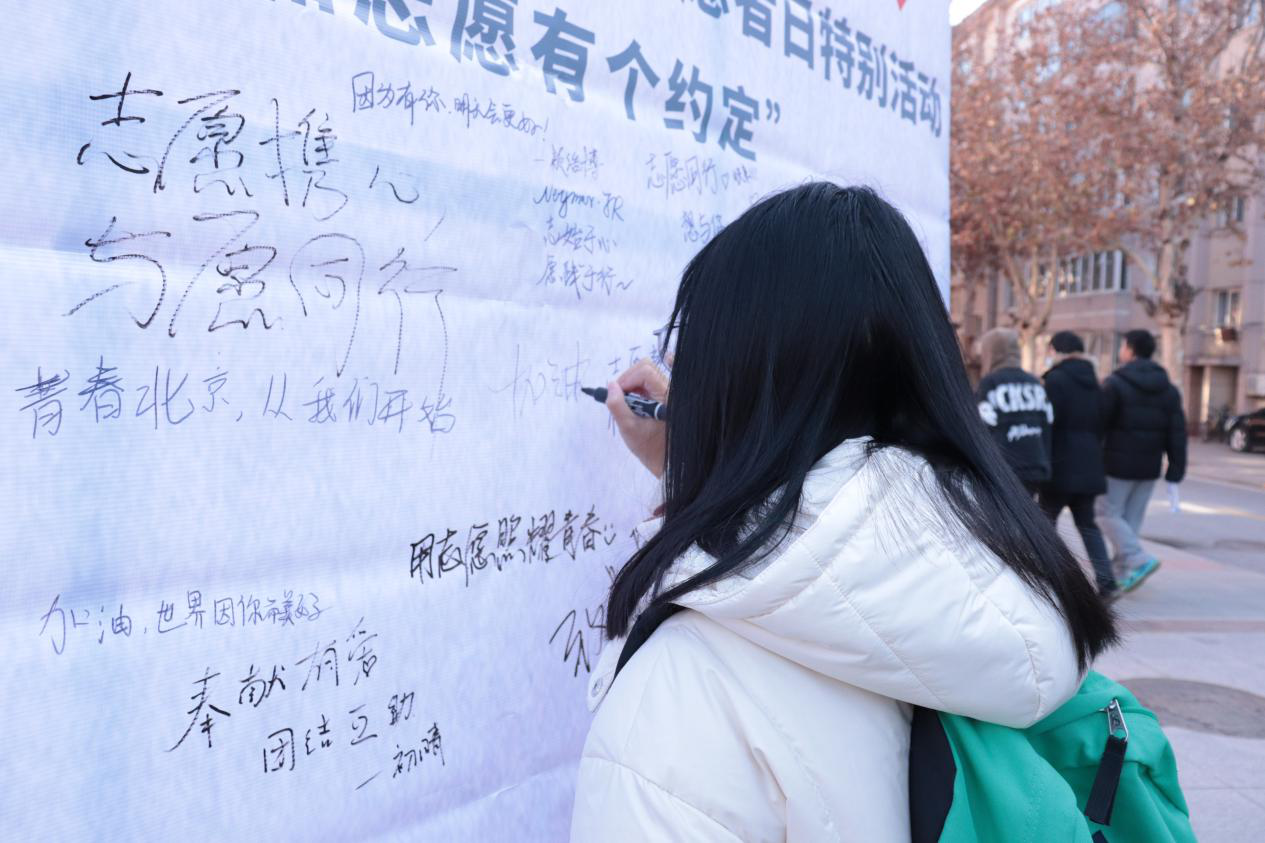 志愿者日特别活动
志愿有个约定”
因为有你，明天会更好！
志愿携心
与愿同行
Neymar.JR
志始于心
愿践于行~
志愿同行
想与你
青春北京，从我们开始
加油
用志愿照耀青春
加油，世界因你而美好
奉献有爱
团结互助
—初晴